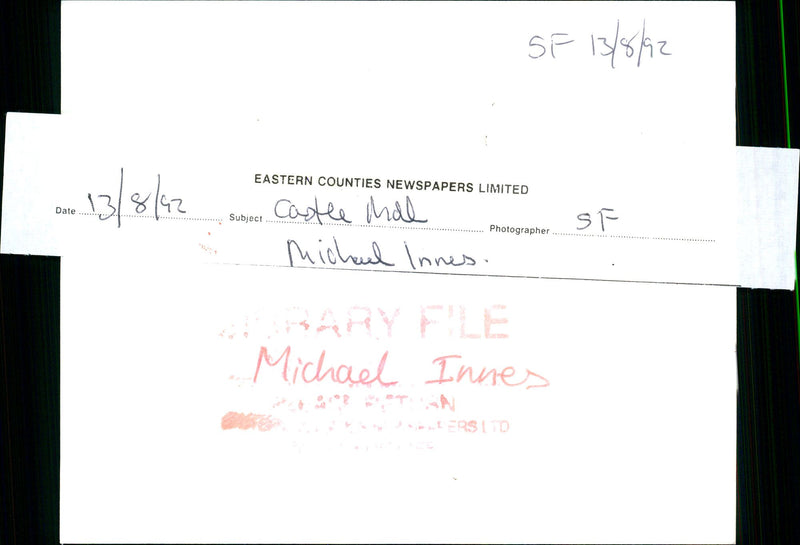 SF 13/8/92
EASTERN COUNTIES NEWSPAPERS LIMITED
Date 13/8/92 Subject Castle Mall Photographer SF
Michael Innes.
LIBRARY FILE
Michael Innes
PLEASE RETURN
PERS LTD